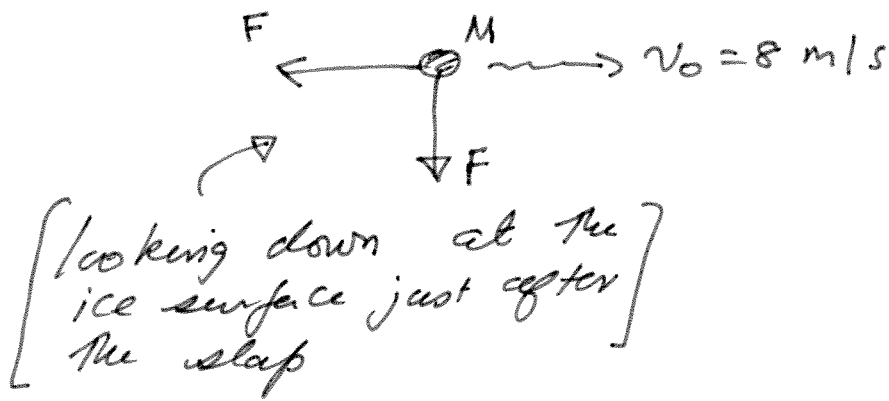 F
M
v₀ = 8 m/s
F
[looking down at the
ice surface just after
the slap]